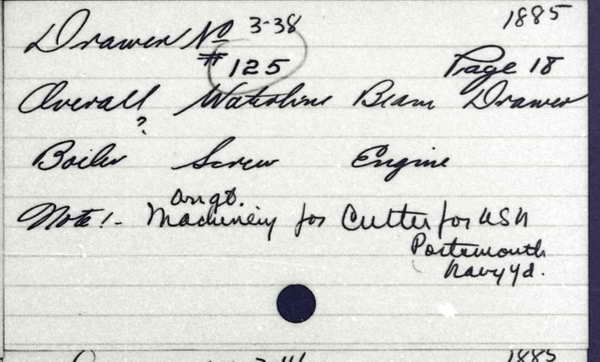 Drawer No 3-38 1885
#125 Page 18
Overall Waterline Beam Drawer
?
Boiler Screw Engine
Arrgt.
Note!- Machinery for Cutter for USN
Portsmouth
Navy Yd.
3- 1885